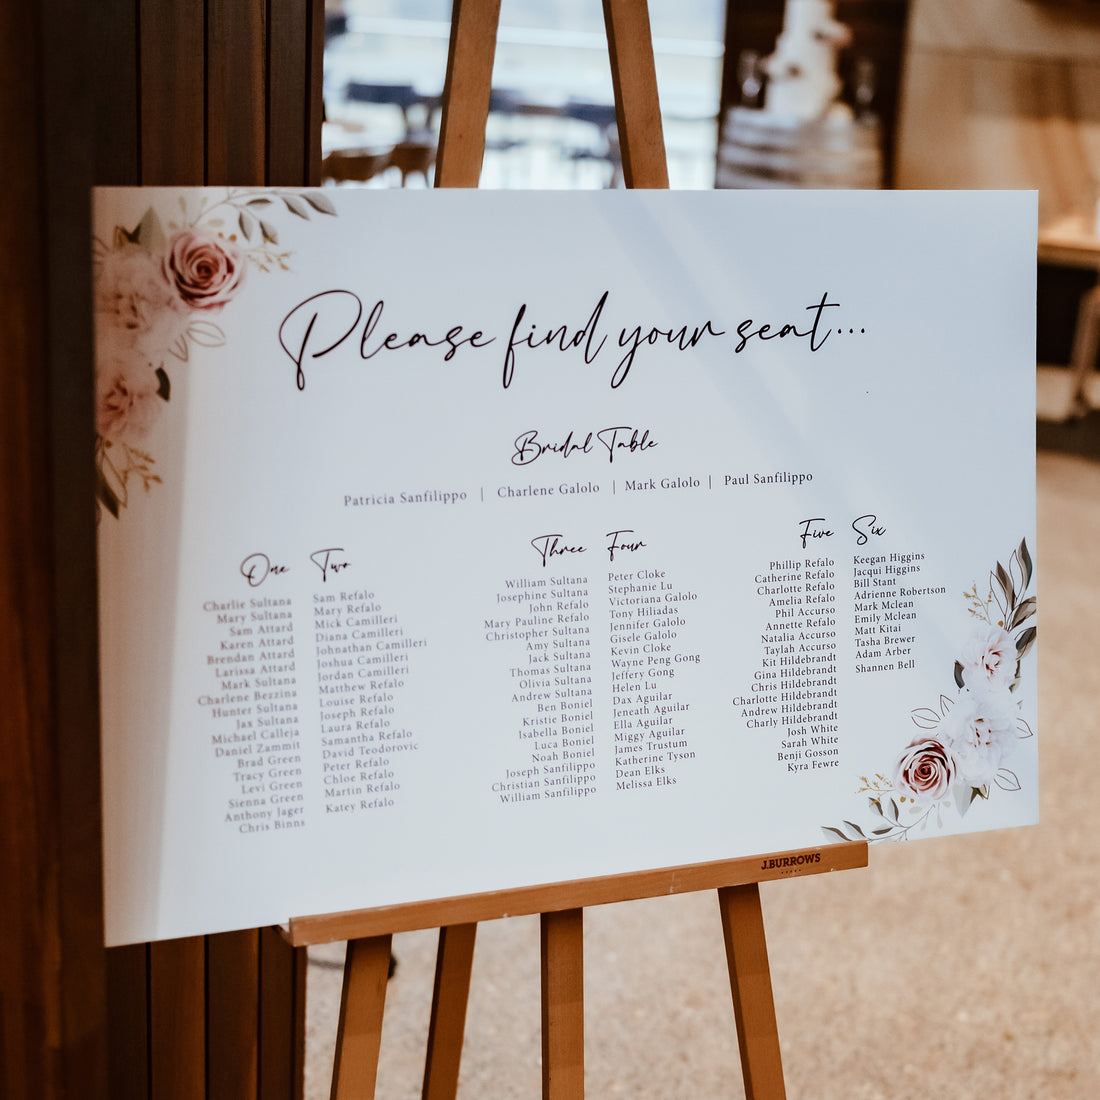 Please find your seat...
Bridal Table
Patricia Sanfilippo | Charlene Galolo | Mark Galolo | Paul Sanfilippo
One
Charlie Sultana
Mary Sultana
Sam Attard
Karen Attard
Brendan Attard
Larissa Attard
Mark Sultana
Charlene Bezzina
Hunter Sultana
Jax Sultana
Michael Calleja
Daniel Zammit
Brad Green
Tracy Green
Levi Green
Sienna Green
Anthony Jager
Chris Binns
Two
Sam Refalo
Mary Refalo
Mick Camilleri
Diana Camilleri
Johnathan Camilleri
Joshua Camilleri
Jordan Camilleri
Matthew Refalo
Louise Refalo
Joseph Refalo
Laura Refalo
Samantha Refalo
David Teodorovic
Peter Refalo
Chloe Refalo
Martin Refalo
Katey Refalo
Three
William Sultana
Josephine Sultana
John Refalo
Mary Pauline Refalo
Christopher Sultana
Amy Sultana
Jack Sultana
Thomas Sultana
Olivia Sultana
Andrew Sultana
Ben Boniel
Kristie Boniel
Isabella Boniel
Luca Boniel
Noah Boniel
Joseph Sanfilippo
Christian Sanfilippo
William Sanfilippo
Four
Peter Cloke
Stephanie Lu
Victoriana Galolo
Tony Hiliadas
Jennifer Galolo
Gisele Galolo
Kevin Cloke
Wayne Peng Gong
Jeffery Gong
Helen Lu
Dax Aguilar
Jeneath Aguilar
Ella Aguilar
Miggy Aguilar
James Trustum
Katherine Tyson
Dean Elks
Melissa Elks
Five
Phillip Refalo
Catherine Refalo
Charlotte Refalo
Amelia Refalo
Phil Accurso
Annette Refalo
Natalia Accurso
Taylah Accurso
Kit Hildebrandt
Gina Hildebrandt
Chris Hildebrandt
Charlotte Hildebrandt
Andrew Hildebrandt
Charly Hildebrandt
Josh White
Sarah White
Benji Gosson
Kyra Fewre
Six
Keegan Higgins
Jacqui Higgins
Bill Stant
Adrienne Robertson
Mark Mclean
Emily Mclean
Matt Kitai
Tasha Brewer
Adam Arber
Shannen Bell
J.BURROWS